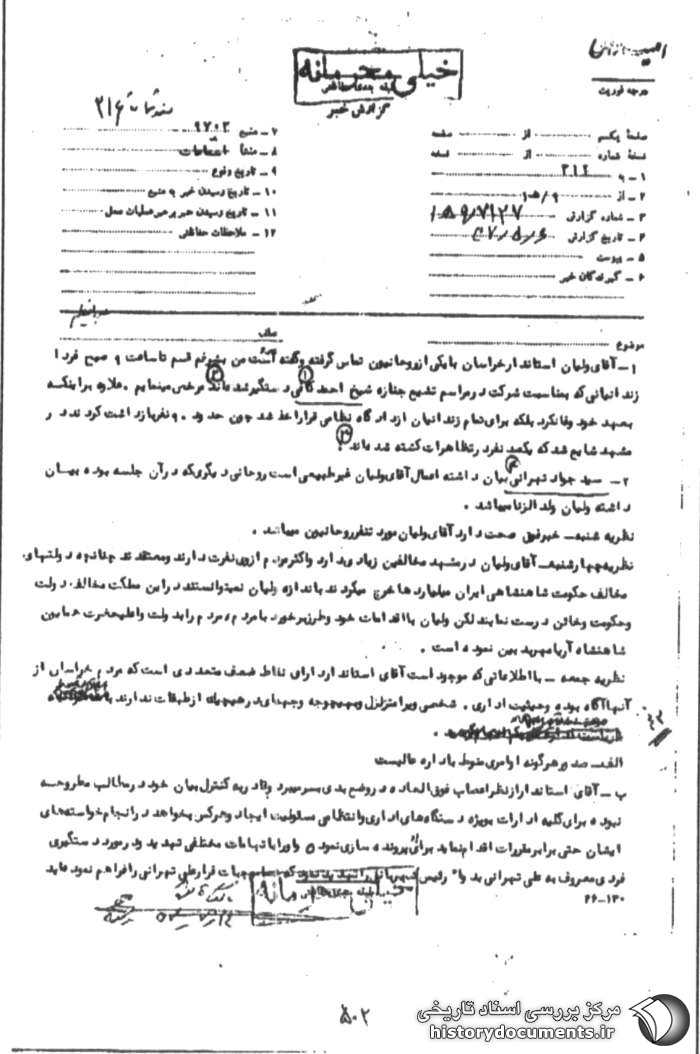 خیلی محرمانه
طبقه بندی حفاظتی
گزارش خبر
درجه فوریت
صفحهٔ یکم از صفحه
نسخهٔ شماره از نسخه
۱ – به ۳۱۲
۲ – از ۹/ه۱
۳ – شماره گزارش
۴ – تاریخ گزارش
۵ – پیوست
۶ – گیرندگان خبر
۷ – منبع ۹۷۰۳
۸ – منشأ
۹ – تاریخ وقوع
۱۰ – تاریخ رسیدن خبر به منبع
۱۱ – تاریخ رسیدن خبر به رهبر عملیات محل
۱۲ – ملاحظات حفاظتی
موضوع
۱– آقای ولیان استاندار خراسان با یکی از روحانیون تماس گرفته و گفته است من بشرفم قسم تا ساعت ۹ صبح فردا
زندانیانی که بمناسبت شرکت در مراسم تشییع جنازه شیخ احمد کافی دستگیر شده‌اند مرخص مینمایم. علاوه بر اینکه
بعهد خود وفا نکرد بلکه برای تمام زندانیان از دادگاه نظامی قرار اخذ شد چون حدود ۹۰ نفر بازداشت کردند در
مشهد شایع شد که یکصد نفر در تظاهرات کشته شده‌اند.
۲– سید جواد تهرانی بیان داشته اعمال آقای ولیان غیرطبیعی است روحانی دیگری که در آن جلسه بوده بیان
داشته ولیان ولدالزنا میباشد.
نظریه شنبه– خبر فوق صحت دارد آقای ولیان مورد تنفر روحانیون میباشد.
نظریه چهارشنبه– آقای ولیان در مشهد مخالفین زیادی دارد و اکثر مردم از وی نفرت دارند و معتقدند چنانچه دولتهای
مخالف حکومت شاهنشاهی ایران میلیاردها خرج میکردند باندازه ولیان نمیتوانستند در این مملکت مخالف دولت
و حکومت و خائن درست نمایند لکن ولیان با اقدامات خود و طرز برخورد با مردم، مردم را بدولت و اعلیحضرت همایون
شاهنشاه آریامهر بدبین نموده است.
نظریه جمعه – با اطلاعاتی که موجود است آقای استاندار دارای نقاط ضعف متعددی است که مردم خراسان از
آنها آگاه بوده و حیثیت اداری، شخصی ویرا متزلزل و بهیچوجه وجهه‌ای در هیچیک از طبقات ندارند
الف– صدور هرگونه اوامری منوط باداره عالیست
ب– آقای استاندار از نظر اعصاب فوق‌العاده در وضع بدی بسر میبرد و قادر به کنترل بیان خود در مطالب مطروحه
نبوده برای کلیه ادارات بویژه دستگاه‌های اداری و انتظامی مسئولیت ایجاد و هرکس بخواهد در انجام خواسته‌های
ایشان حتی برابر مقررات اقدام نماید برای او پرونده سازی نموده و او را با تهامات مختلفی تهدید و در مورد دستگیری
فردی معروف به علی تهرانی بدواً رئیس شهربانی را تهدید نمود که موجبات فرار علی تهرانی را فراهم نموده‌اید
۲۶–۱۳۰
۵۰۲
مرکز بررسی اسناد تاریخی
historydocuments.ir